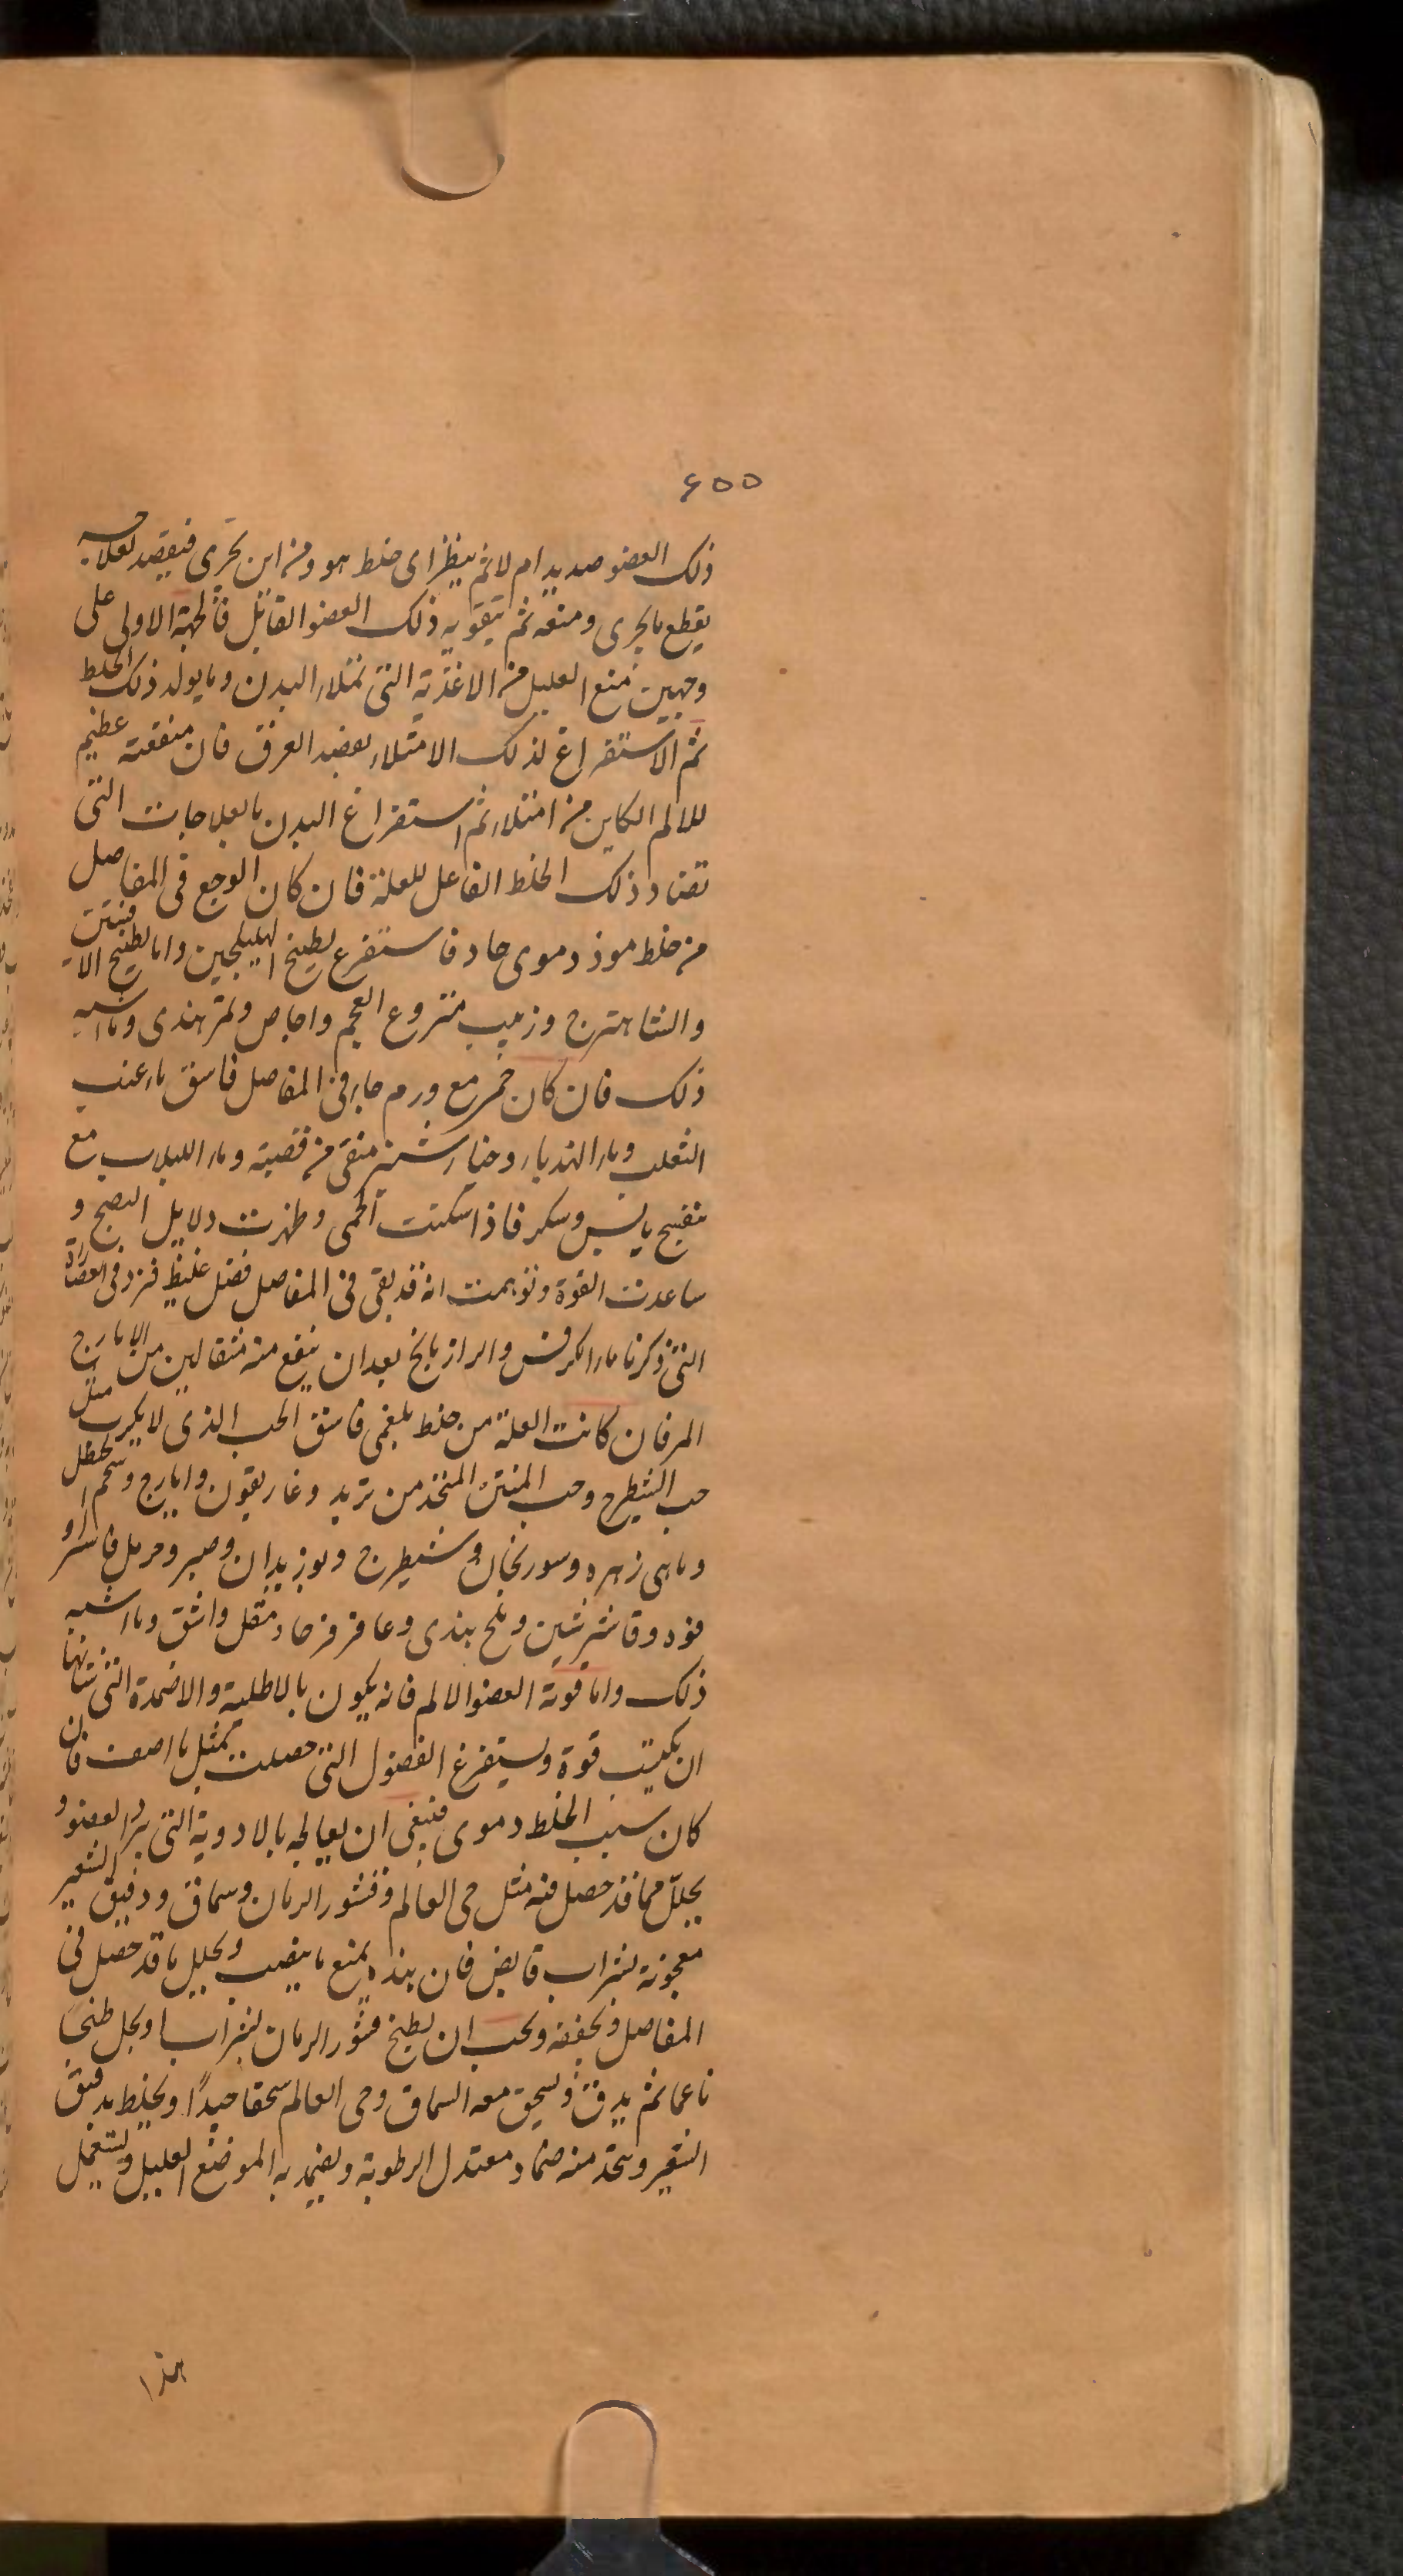 ٤٥٥
ذلك العضو صديد ام لا ثم ينظر اى خلط هو ومن اين تحرى فيقصد لعلاجه
يقطع ما يجرى ومنعه ثم بتقوية ذلك العضو القابل فالجهة الاولى على
وجهين منع العليل من الاغذية التى تملاء البدن وما يولد ذلك الخلط
ثم الاستفراغ لذلك الامتلاء بفصد العرق فان منفعته عظيم
للالم الكاين من امتلاء ثم استفراغ البدن بالعلاجات التى
تضاد ذلك الخلط الفاعل للعلة فان كان الوجع فى المفاصل
من خلط موذ دموى حاد فاستفرغ بطبيخ الهليلجين واما بطبيخ الافسنتين
والشاهترج وزبيب منزوع العجم واجاص وتمر هندى وما اشبه
ذلك فان كان خمر مع ورم حار فى المفاصل فاسق ماء عنب
الثعلب وماء الهندباء وخيار شنبر منقى من قصبة وماء اللبلاب مع
بنفسج يابس وسكر فاذا سكنت الحمى وظهرت دلايل النضج و
ساعدت القوة وتوهمت انه قد بقى فى المفاصل فضل غليظ فزد فى العصارة
التى ذكرنا ماء الكرفس والرازيانج بعد ان ينقع منه مثقالين من الايارج
المر فان كانت العلة من خلط بلغمى فاسق الحب الذى لا يكرب مثل
حب الشيطرج وحب المنتن المتخذ من تربد وغاريقون وايارج وشحم الحنظل
وماهى زهره وسورنجان وشيطرج وبوزيدان وصبر وحرمل فاشرا و
فوه وقاشرشتين وملح هندى وعاقرقرحا ومقل واشق وما اشبه
ذلك واما قوة العضو الالم فانه يكون بالاطلية والاضمدة التى شانها
ان يكسب قوة ويستفرغ الفضول التى حصلت بمثل ما اصف فان
كان سبب الخلط دموى فينبغى ان يعالجه بالادوية التى يبرد العضو و
يحلل مما قد حصل فيه مثل حى العالم وقشور الرمان وسماق ودقيق الشعير
معجونة بشراب قابض فان هذه يمنع ما ينصب ويحلل ما قد حصل فى
المفاصل وتجففه ويجب ان يطبخ قشور الرمان بشراب او بخل طبخا
ناعما ثم يدق ويسحق معه السماق وحى العالم سحقا جيدًا ويخلط بدقيق
الشعير ويتخذ منه ضماد معتدل الرطوبة ويضمد به الموضع العليل ويستعمل
هذا